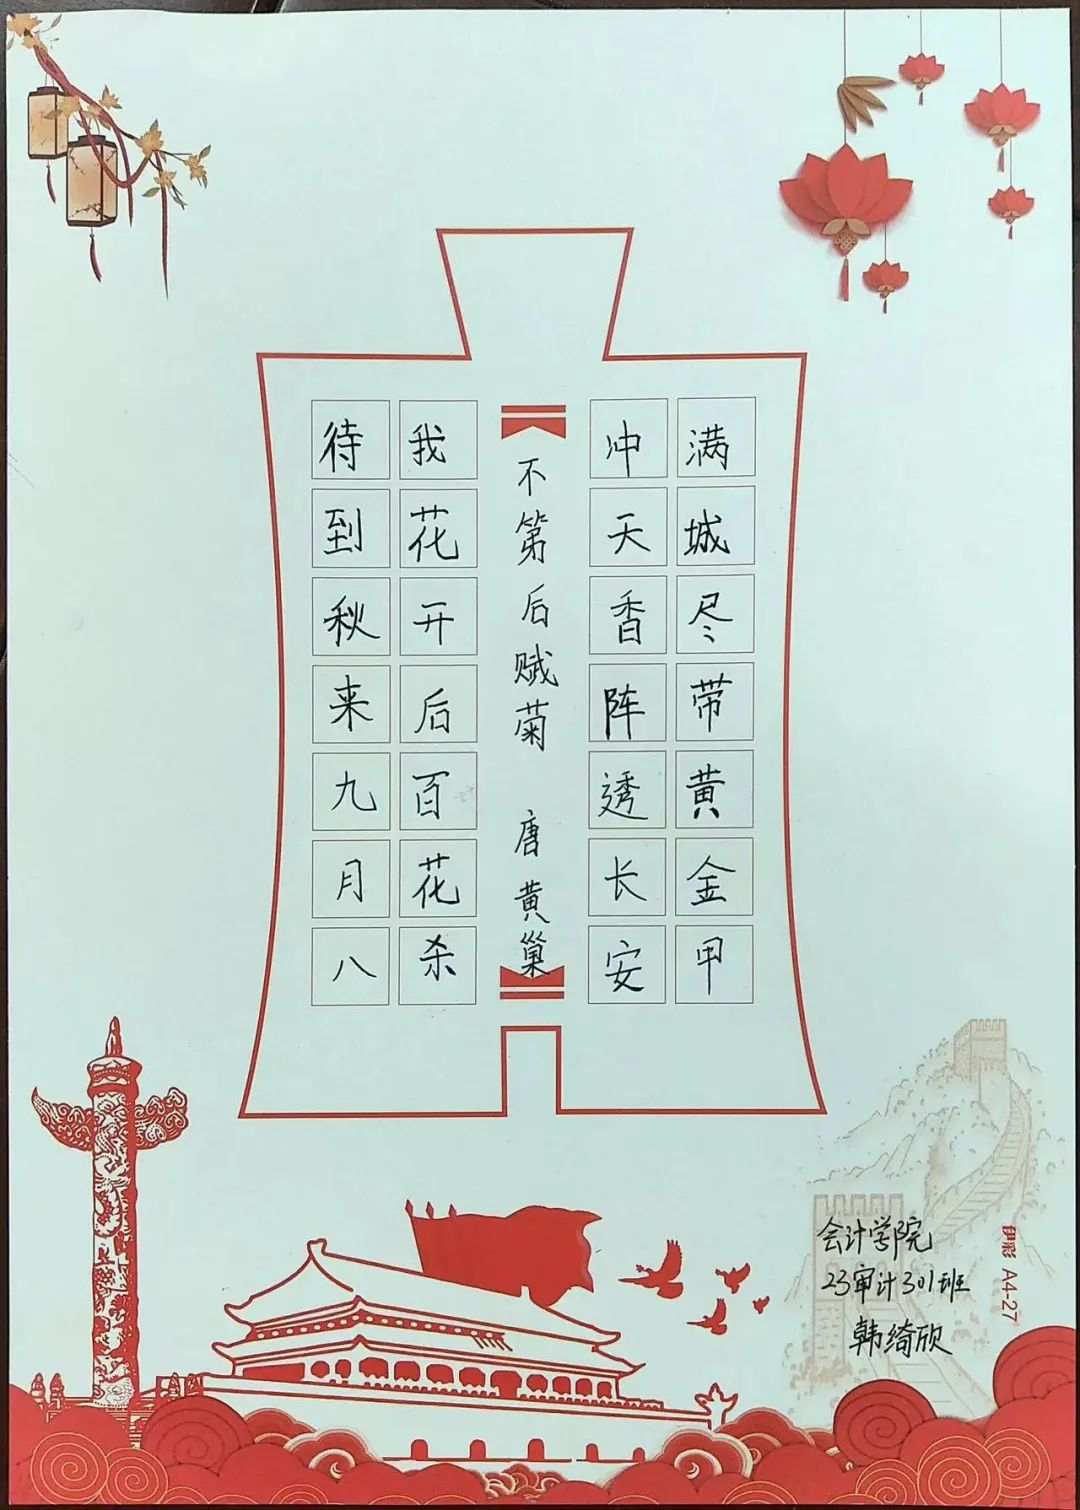 待到秋来九月八
我花开后百花杀
不第后赋菊 唐 黄巢
冲天香阵透长安
满城尽带黄金甲
会计学院
23审计301班
韩绮欣
伊彩 A4-27